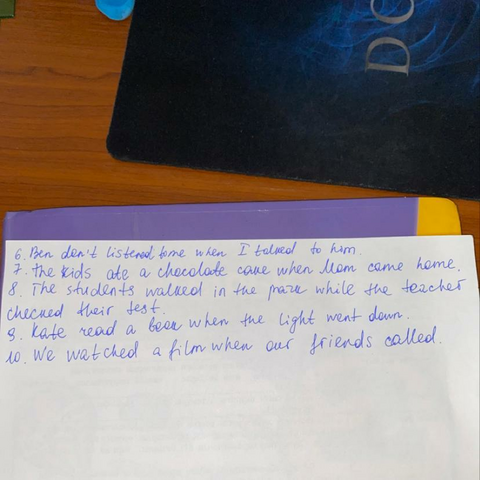 DO
6. Ben don't listened to me when I talked to him.
7. The kids ate a chocolate cake when Mom came home.
8. The students walked in the park while the teacher
checked their test.
9. Kate read a book when the light went down.
10. We watched a film when our friends called.